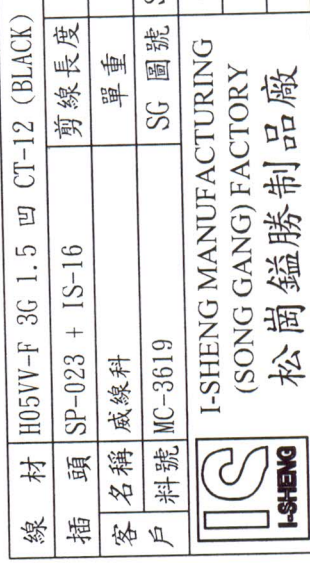 線 材 H05VV-F 3G 1.5 凹 CT-12 (BLACK)
插 頭 SP-023 + IS-16 剪線長度
客戶 名稱 威線科 單 重
料號 MC-3619 SG 圖號
IS
I-SHENG
I-SHENG MANUFACTURING
(SONG GANG) FACTORY
松崗鎰勝制品廠